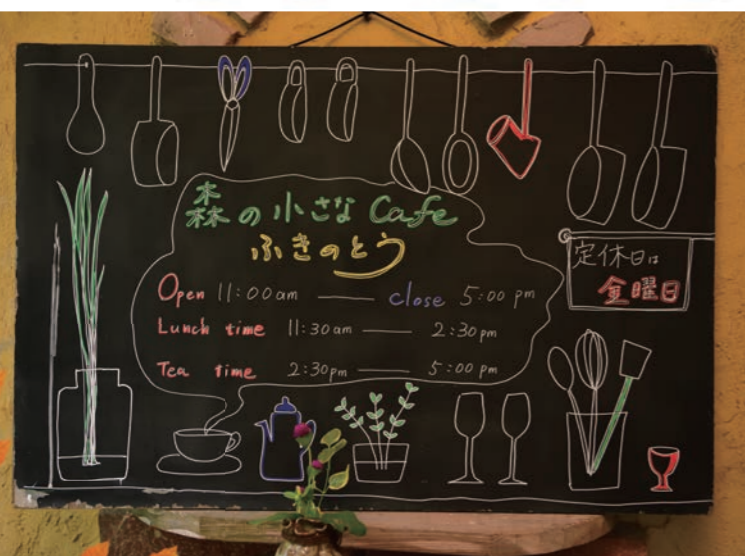 森の小さな Cafe
ふきのとう
Open 11:00am — close 5:00 pm
Lunch time 11:30am — 2:30pm
Tea time 2:30pm — 5:00 pm
定休日は
金曜日